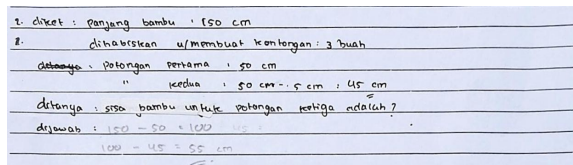 1. diket : panjang bambu : 150 cm
2. dihabiskan u/membuat kentongan : 3 buah
potongan pertama : 50 cm
" kedua : 50 cm - 5 cm : 45 cm
ditanya : sisa bambu untuk potongan ketiga adalah ?
dijawab : 150 - 50 = 100
100 - 45 = 55 cm